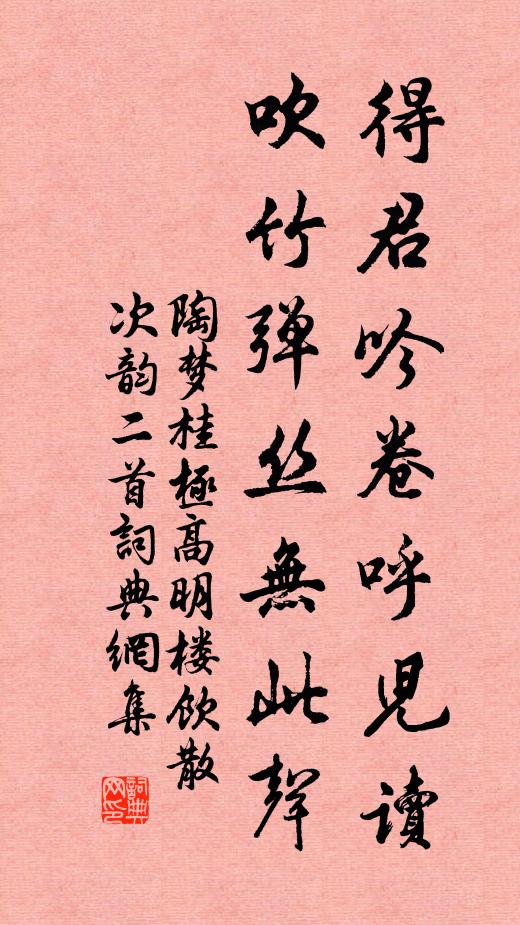 得君吟卷呼児讀
吹竹弹丝無此聲
陶梦桂極高明楼饮散
次韵二首詞典網集
詞典
网印